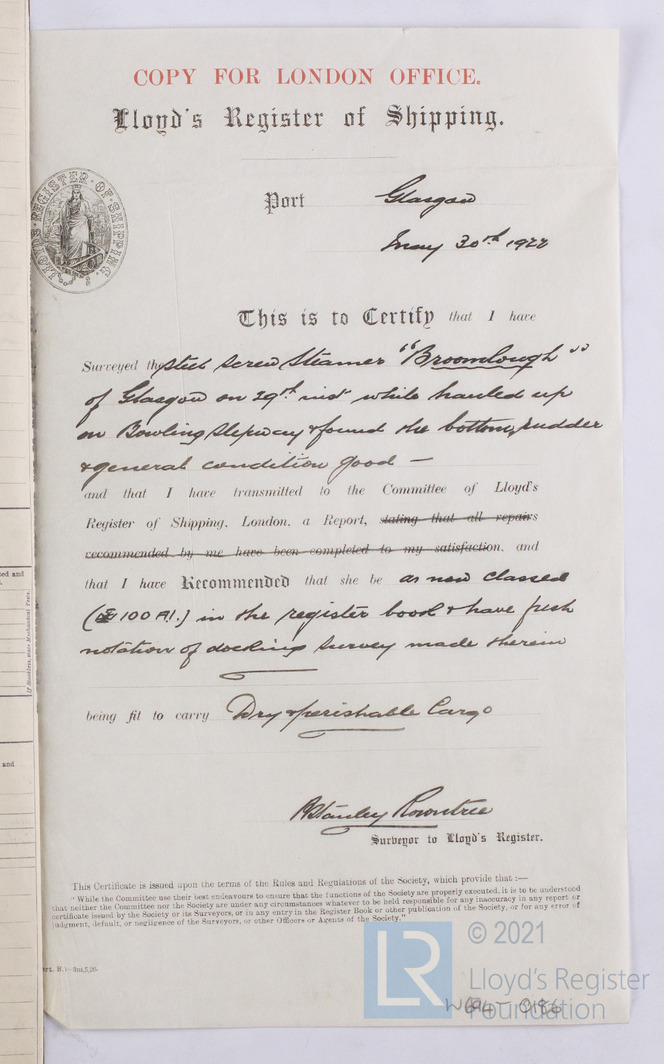 COPY FOR LONDON OFFICE.
Lloyd's Register of Shipping.
LLOYD'S REGISTER OF SHIPPING
Port Glasgow
May 30th 1922
This is to Certify that I have
Surveyed the steel screw steamer "Broomlough"
of Glasgow on 29th inst while hauled up
on Bowling slipway & found the bottom, rudder
& general condition good —
and that I have transmitted to the Committee of Lloyd's
Register of Shipping, London, a Report, stating that all repairs
recommended by me have been completed to my satisfaction, and
that I have Recommended that she be as now classed
100 A1.) in the register book & have fresh
notation of docking survey made therein
being fit to carry Dry & perishable Cargo
Stanley Rowntree
Surveyor to Lloyd's Register.
This Certificate is issued upon the terms of the Rules and Regulations of the Society, which provide that :—
"While the Committee use their best endeavours to ensure that the functions of the Society are properly executed, it is to be understood
that neither the Committee nor the Society are under any circumstances whatever to be held responsible for any inaccuracy in any report or
certificate issued by the Society or its Surveyors, or in any entry in the Register Book or other publication of the Society, or for any error of
judgment, default, or negligence of the Surveyors, or other Officers or Agents of the Society."
ert. B.)—3m,5,20.
LR
© 2021
Lloyd's Register
Foundation
W694-0196
ed and
If Stockless, state Mechanical Tests.
and